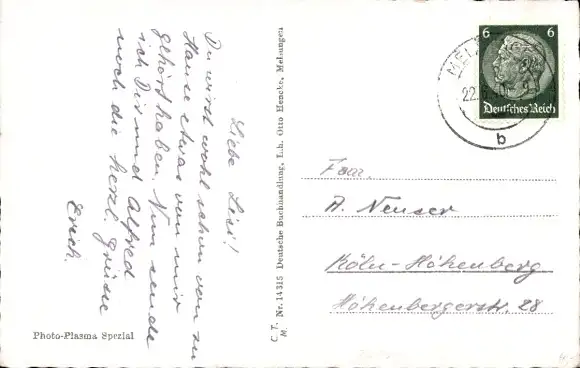 Liebe Lisi!
Du wirst wohl schon von zu
Hause etwas von mir
gehört haben. Nun sende
ich Dir und Alfred
noch die herzl. Grüße
Erich.
Photo-Plasma Spezial
C. T. Nr. 14315 Deutsche Buchhandlung, Inh. Otto Hencke, Melsungen
M.
6 6
Deutsches Reich
MEL
22.
b
Fam.
A. Neuser
Köln-Höhenberg
Höhenbergerstr. 28